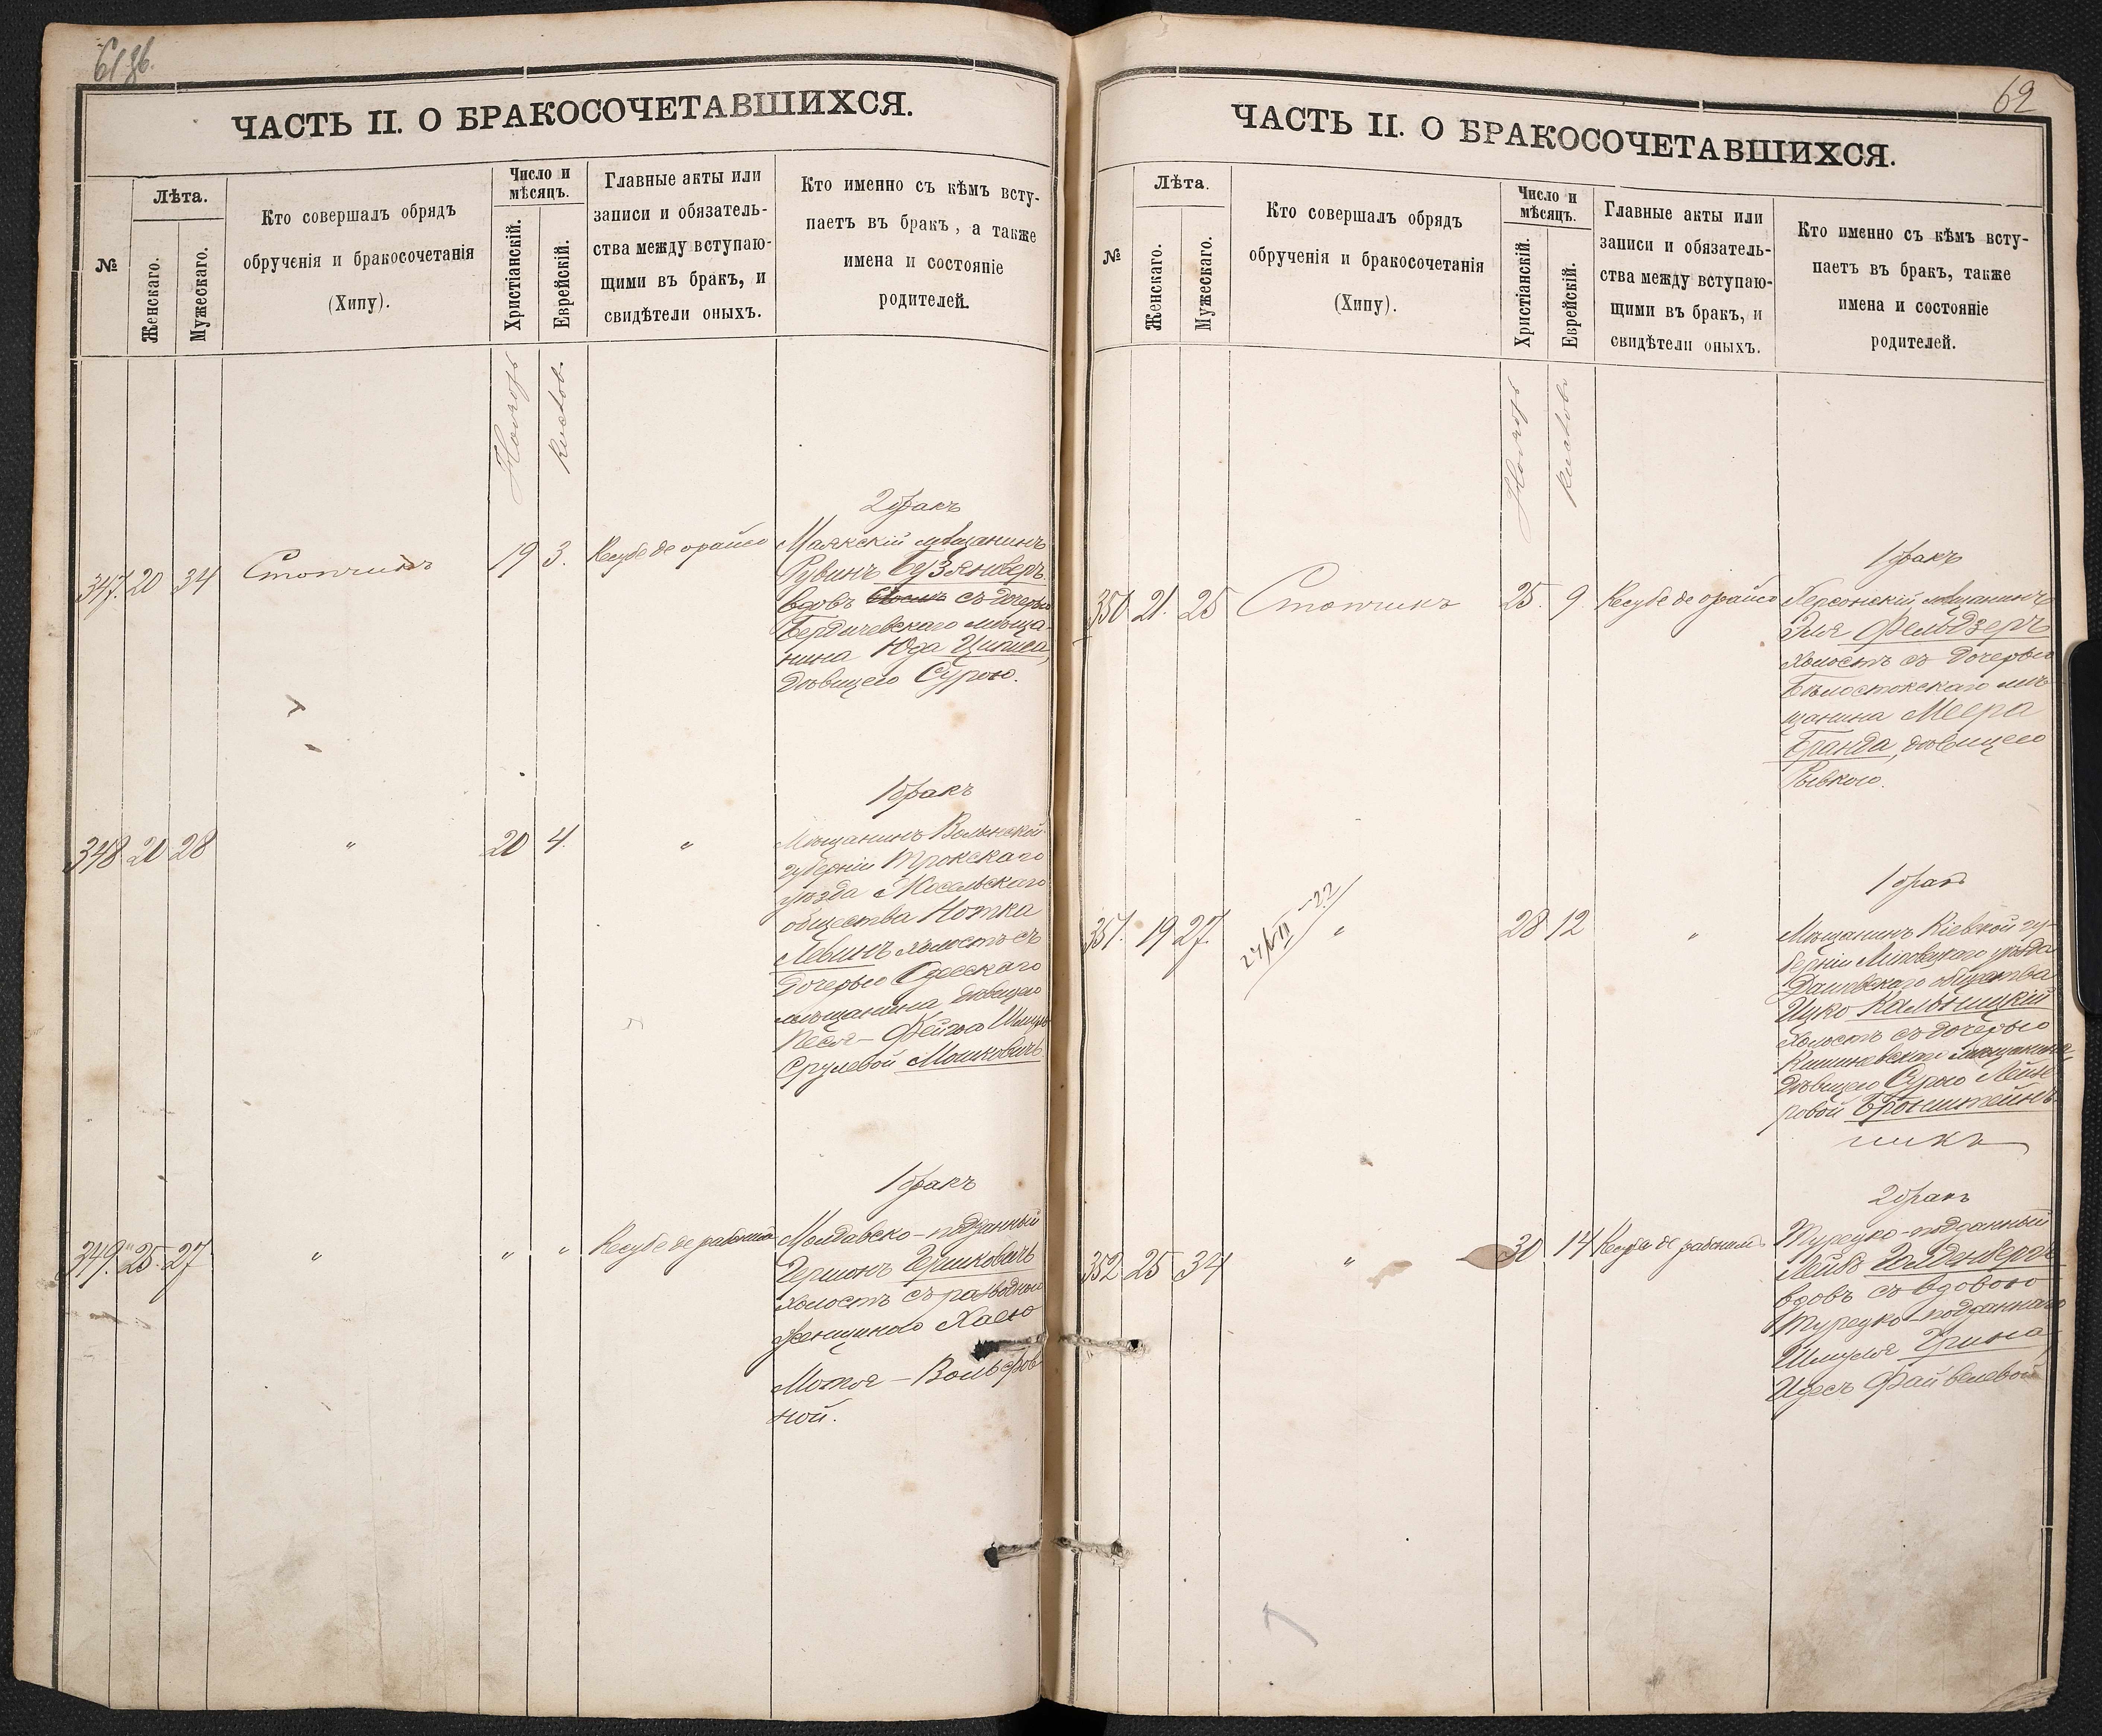 61 зб.
ЧАСТЬ II. О БРАКОСОЧЕТАВШИХСЯ.
№
Лѣта.
Женскаго.
Мужескаго.
Кто совершалъ обрядъ
обрученія и бракосочетанія
(Хипу).
Число и
мѣсяцъ.
Христіанскій.
Еврейскій.
Главные акты или
записи и обязатель-
ства между вступаю-
щими въ бракъ, и
свидѣтели оныхъ.
Кто именно съ кѣмъ всту-
паетъ въ бракъ, а также
имена и состояніе
родителей.
Ноябрь
Кислов.
347. 20 34 Стопчикъ 19 3. Кесубе де орайсо
2 бракъ
Маякскій мѣщанинъ
Рувинъ Бузянверъ
вдовъ съ дочерью
Бердичевскаго мѣща-
нина Юда Циписа,
дѣвицею Сурою.
348 20 28 " 20 4. "
1 бракъ
Мѣщанинъ Волынской
губерніи Трокскаго
уѣзда
общества Нотка
Левинъ холостъ съ
дочерью Одесскаго
мѣщанина, дѣвицею
Песя-Фейга Шмуль
Срулевой Мошковичъ
349. 25. 27 " " " Кесубе де рабонимъ
1 бракъ
Молдавско-подданный
Гершонъ Гершковичъ
холостъ съ разводной
женщиною Хаею
Мотя-Вольфов
ной.
62
ЧАСТЬ II. О БРАКОСОЧЕТАВШИХСЯ.
№
Лѣта.
Женскаго.
Мужескаго.
Кто совершалъ обрядъ
обрученія и бракосочетанія
(Хипу).
Число и
мѣсяцъ.
Христіанскій.
Еврейскій.
Главные акты или
записи и обязатель-
ства между вступаю-
щими въ бракъ, и
свидѣтели оныхъ.
Кто именно съ кѣмъ всту-
паетъ въ бракъ, также
имена и состояніе
родителей.
Ноябрь
Кислов
350. 21. 25 Стопчикъ 25. 9. Кесубе де орайсо
1 бракъ
Херсонскій мѣщанинъ
Эля Фельдзеръ
холостъ съ дочерью
Бѣлостокскаго мѣ-
щанина Меера
Бранда, дѣвицею
Ривкою.
351. 19 27. " 28 12 "
1 бракъ
Мѣщанинъ Кіевской гу-
берніи Липовецкаго уѣзда
Дашевскаго общества
Ицко Кальницкій
холостъ съ дочерью
Кишиневскаго мѣщанина,
дѣвицею Сурою Лейзе
ровой Бронштейнъ
чикъ
352 25 34 " 30 14 Кесубе де рабонимъ
2 бракъ
Турецко-подданный
Лейбъ
вдовъ съ вдовою
Турецко-подданнаго
Шмуля Грина,
Идесъ Файвелевой